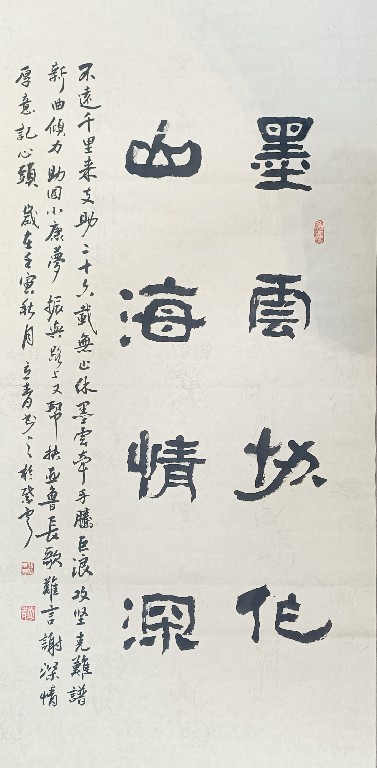 墨雲协作
山海情深
不遠千里来支助二十六載無止休墨雲牽手騰巨浪攻坚克難譜
新曲傾力助圆小康夢振興路上又帮扶亚鲁長歌難言謝深情
厚意記心頭 歲在壬寅秋月立青书之於紫雲